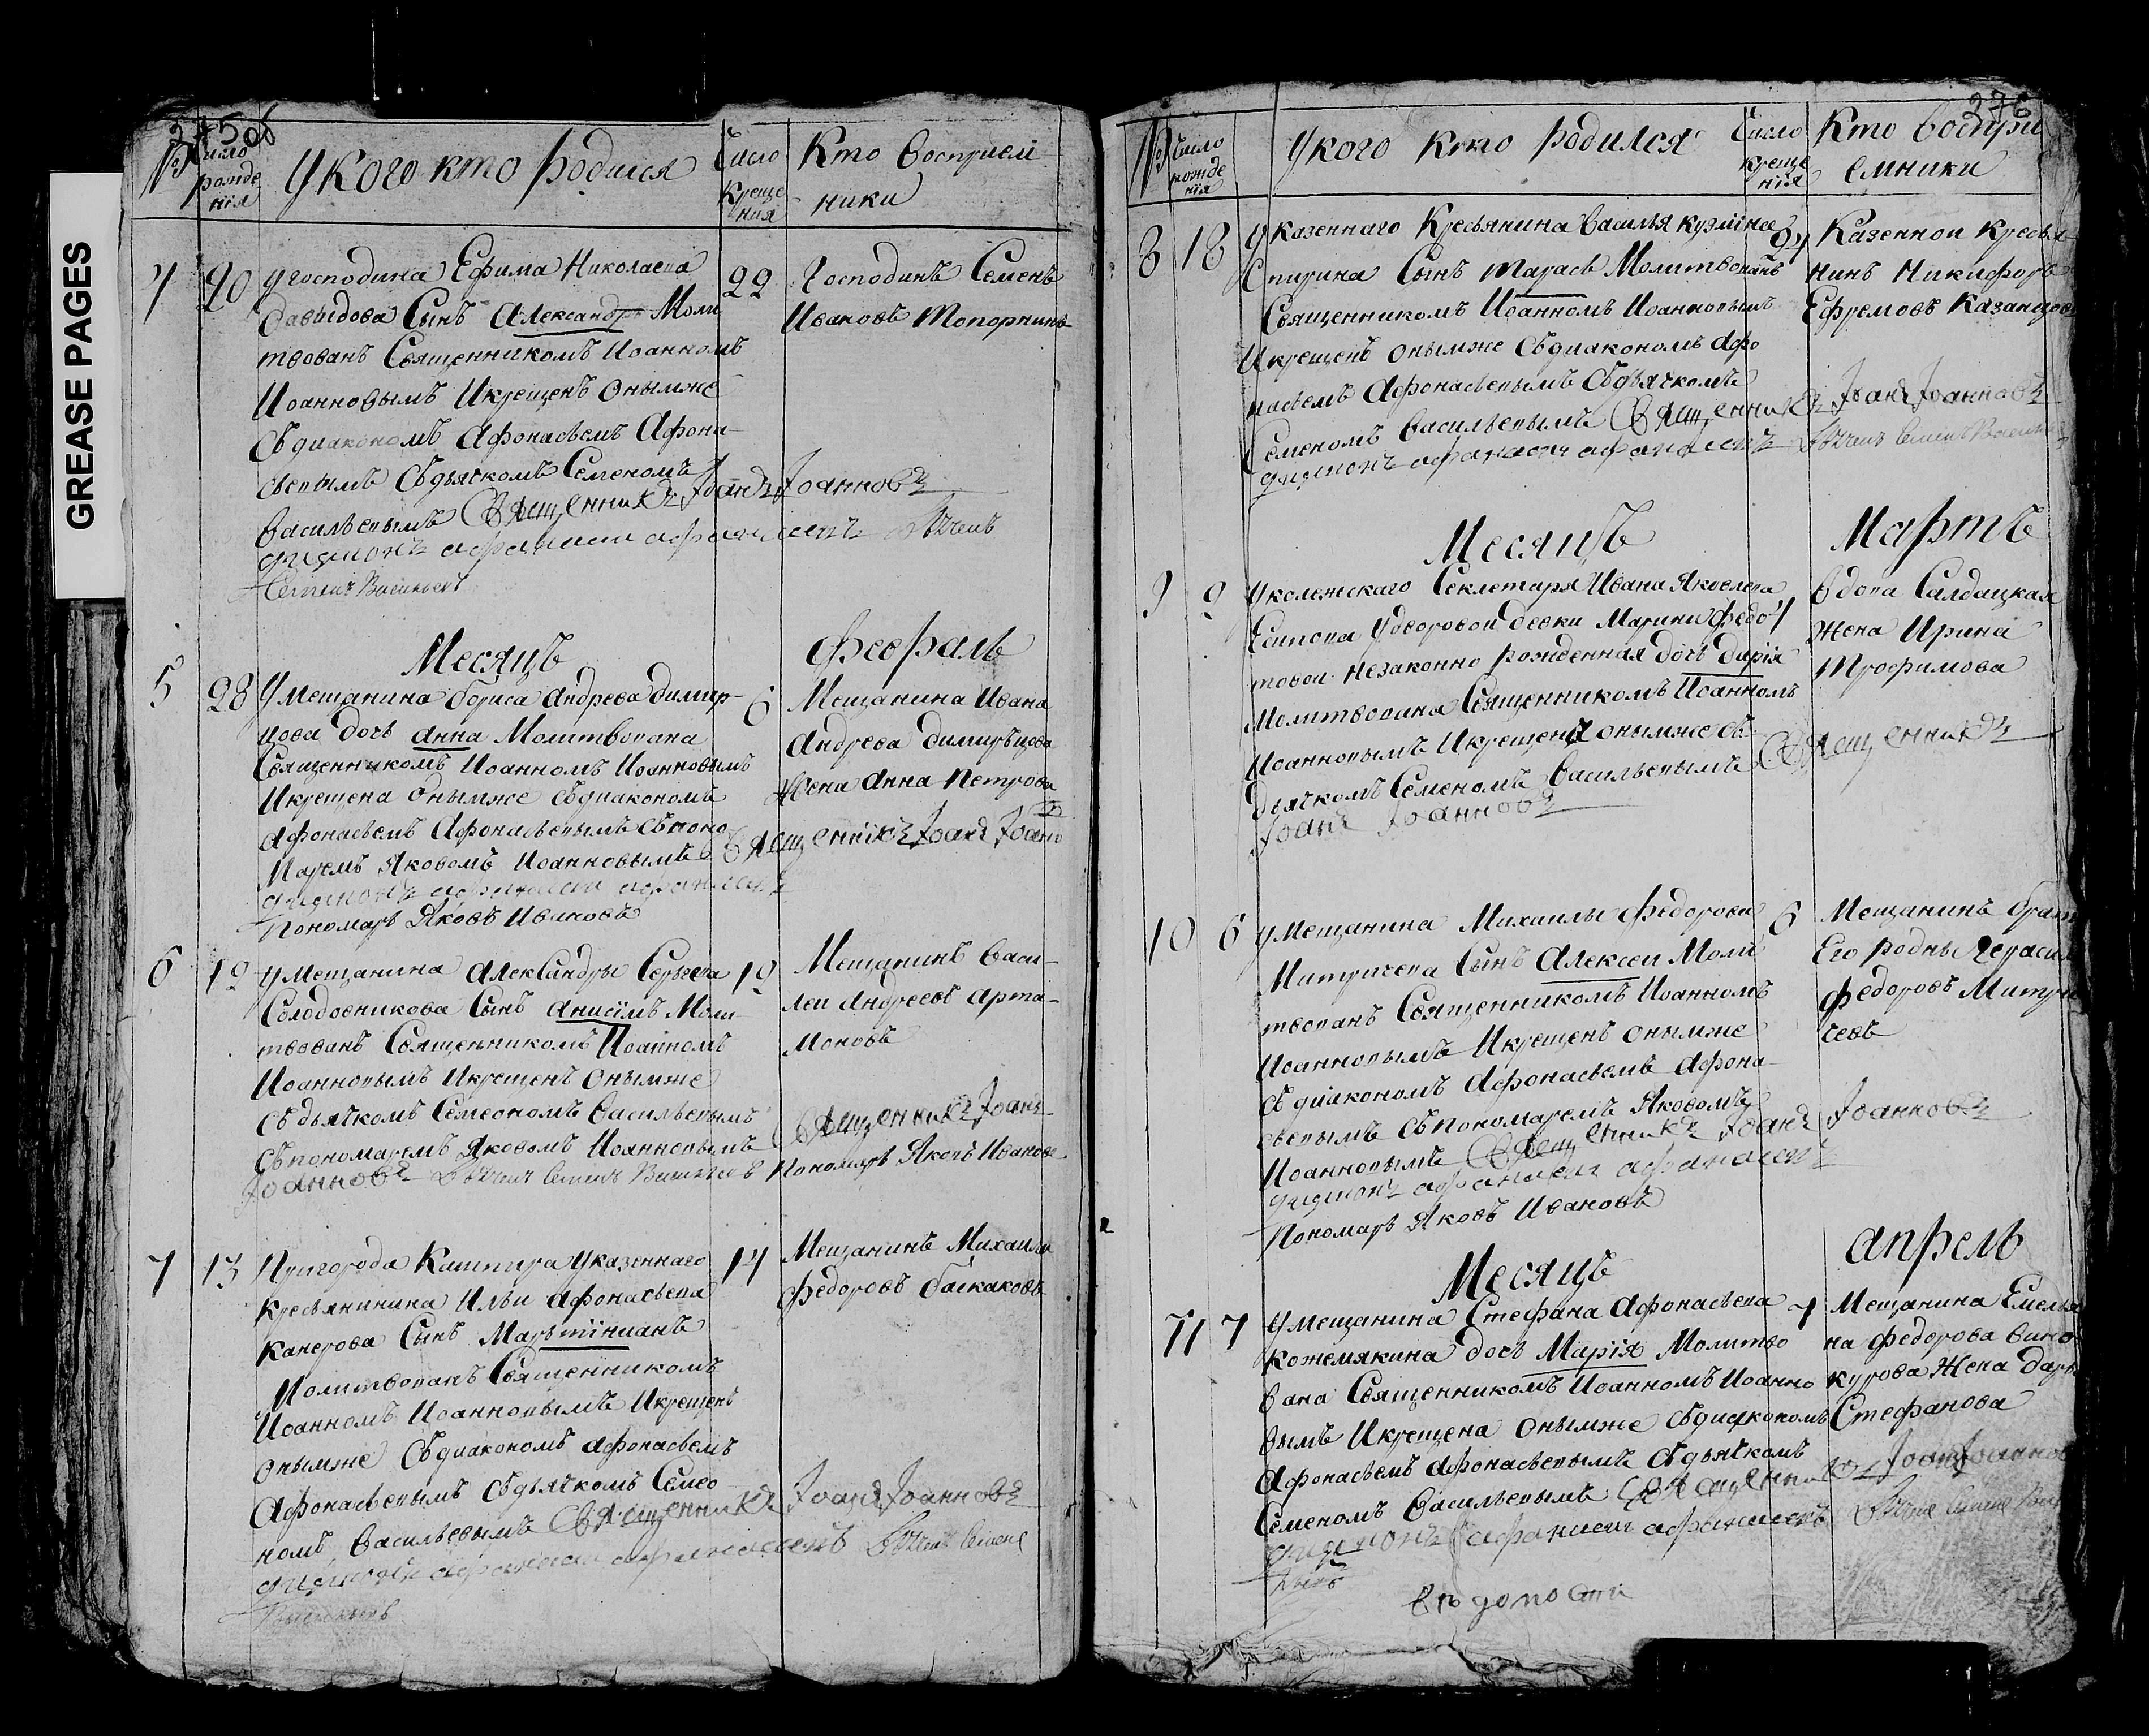 GREASE PAGES
275 об
№ Число рожденія
У кого кто родился
Число крещения
Кто восприемники
4 20 22
У господина Ефима Николаева
Давыдова Сынъ Александръ Моли
твованъ Священникомъ Иоанномъ
Иоанновымъ И крещенъ Онымже
Съ диакономъ Афонасьемъ Афона-
сьевымъ Съ дьячкомъ Семеномъ
Васильевымъ Священникъ Иоанъ Иоанновъ
Господинъ Семенъ
Ивановъ Топорнинъ
диаконъ афанасий афанасьевъ Дьячекъ
Семенъ Васильевъ
Месяцъ Февраль
5 28 6
У Мещанина бориса Андрева димир-
цова дочь Анна Молитвована
Священникомъ Иоанномъ Иоанновымъ
И крещена Онымже Съ диакономъ
Афонасьемъ Афонасьевымъ Съ поно
Маремъ Яковомъ Иоанновымъ Священникъ Иоанъ Иоано
въ
Мещанина Ивана
Андрева димирцова
Жена Анна Петрова
диаконъ афанасий афанасьевъ
Пономарь Яковъ Ивановъ
6 12 12
У Мещанина Александры Сергева
Солодовникова Сынъ Анисимъ Моли-
твованъ Священникомъ Иоанномъ
Иоанновымъ И крещенъ Онымже
Съ дьячкомъ Семеономъ Васильевымъ
Съ пономаремъ Яковомъ Иоанновымъ
Мещанинъ Васи-
леи Андреевъ Арта-
моновъ
Священникъ Иоанъ
Иоанновъ Дьячекъ Семенъ Васильевъ Пономарь Яковъ Ивановъ
7 13 14
Пригорода Кашпира У казеннаго
кресьянинина Ильи Афонасьева
Канерова Сынъ Мартинианъ
Молитвованъ Священникомъ
Иоанномъ Иоанновымъ И крещенъ
Онымже Съ диакономъ Афонасьемъ
Афонасьевымъ Съ дьячкомъ Семео
номъ Васильевымъ Священникъ Иоанъ Иоанновъ
Мещанинъ Михаила
Федоровъ баскаковъ
диаконъ афанасий афанасьевъ Дьячекъ Семенъ
Васильевъ
276
№ Число рожденія
У кого кто родился
Число крещенія
Кто восприемники
8 18 24
У казеннаго Кресьянина Василья Кузмина
Спирина Сынъ Тарасъ Молитвованъ
Священникомъ Иоанномъ Иоанновымъ
И крещенъ Онымже Съ диакономъ Афо
насьемъ Афонасьевымъ Съ дьячкомъ
Семеномъ Васильевымъ Священникъ Иоанъ Иоанновъ
Казеннои Кресья-
нинъ Никифоръ
Ефремовъ Казанцовъ
диаконъ афанасий афанасьевъ Дьячекъ Семенъ Васильевъ
Месяцъ Мартъ
9 2 4
У колежскаго Секлетаря Ивана Яковлева
Есипова У дворовои девки Марины Федо
товои незаконно рожденная дочь дария
Молитвована Священникомъ Иоанномъ
Иоанновымъ И крещена Онымже Съ
дьячкомъ Семеномъ Васильевымъ Священникъ
Иоанъ Иоанновъ
Вдова Салдацкая
Жена Ирина
Трофимова
10 6 6
У Мещанина Михаилы Федорова
Митричева Сынъ Алексеи Моли
твованъ Священникомъ Иоанномъ
Иоанновымъ И крещенъ Онымже
Съ диакономъ Афонасьемъ Афона-
сьевымъ Съ пономаремъ Яковомъ
Иоанновымъ Священникъ Иоанъ Иоанновъ
Мещанинъ братъ
Его родны Герасимъ
Федоровъ Митри
чевъ
диаконъ афанасий афанасьевъ
Пономарь Яковъ Ивановъ
Месяцъ апрель
11 7 7
У Мещанина Стефана Афонасьева
Кожемякина дочь Мария Молитво
вана Священникомъ Иоанномъ Иоанно
вымъ И крещена Онымже Съ диакономъ
Афонасьемъ Афонасьевымъ Съ дьячкомъ
Семеномъ Васильевымъ Священникъ Иоанъ Иоаннов
Мещанина Емелья
на Федорова Вино
курова Жена Дарья
Стефанова
диаконъ афанасий афанасьевъ Дьячекъ Семенъ Васи
льевъ
Въдомости